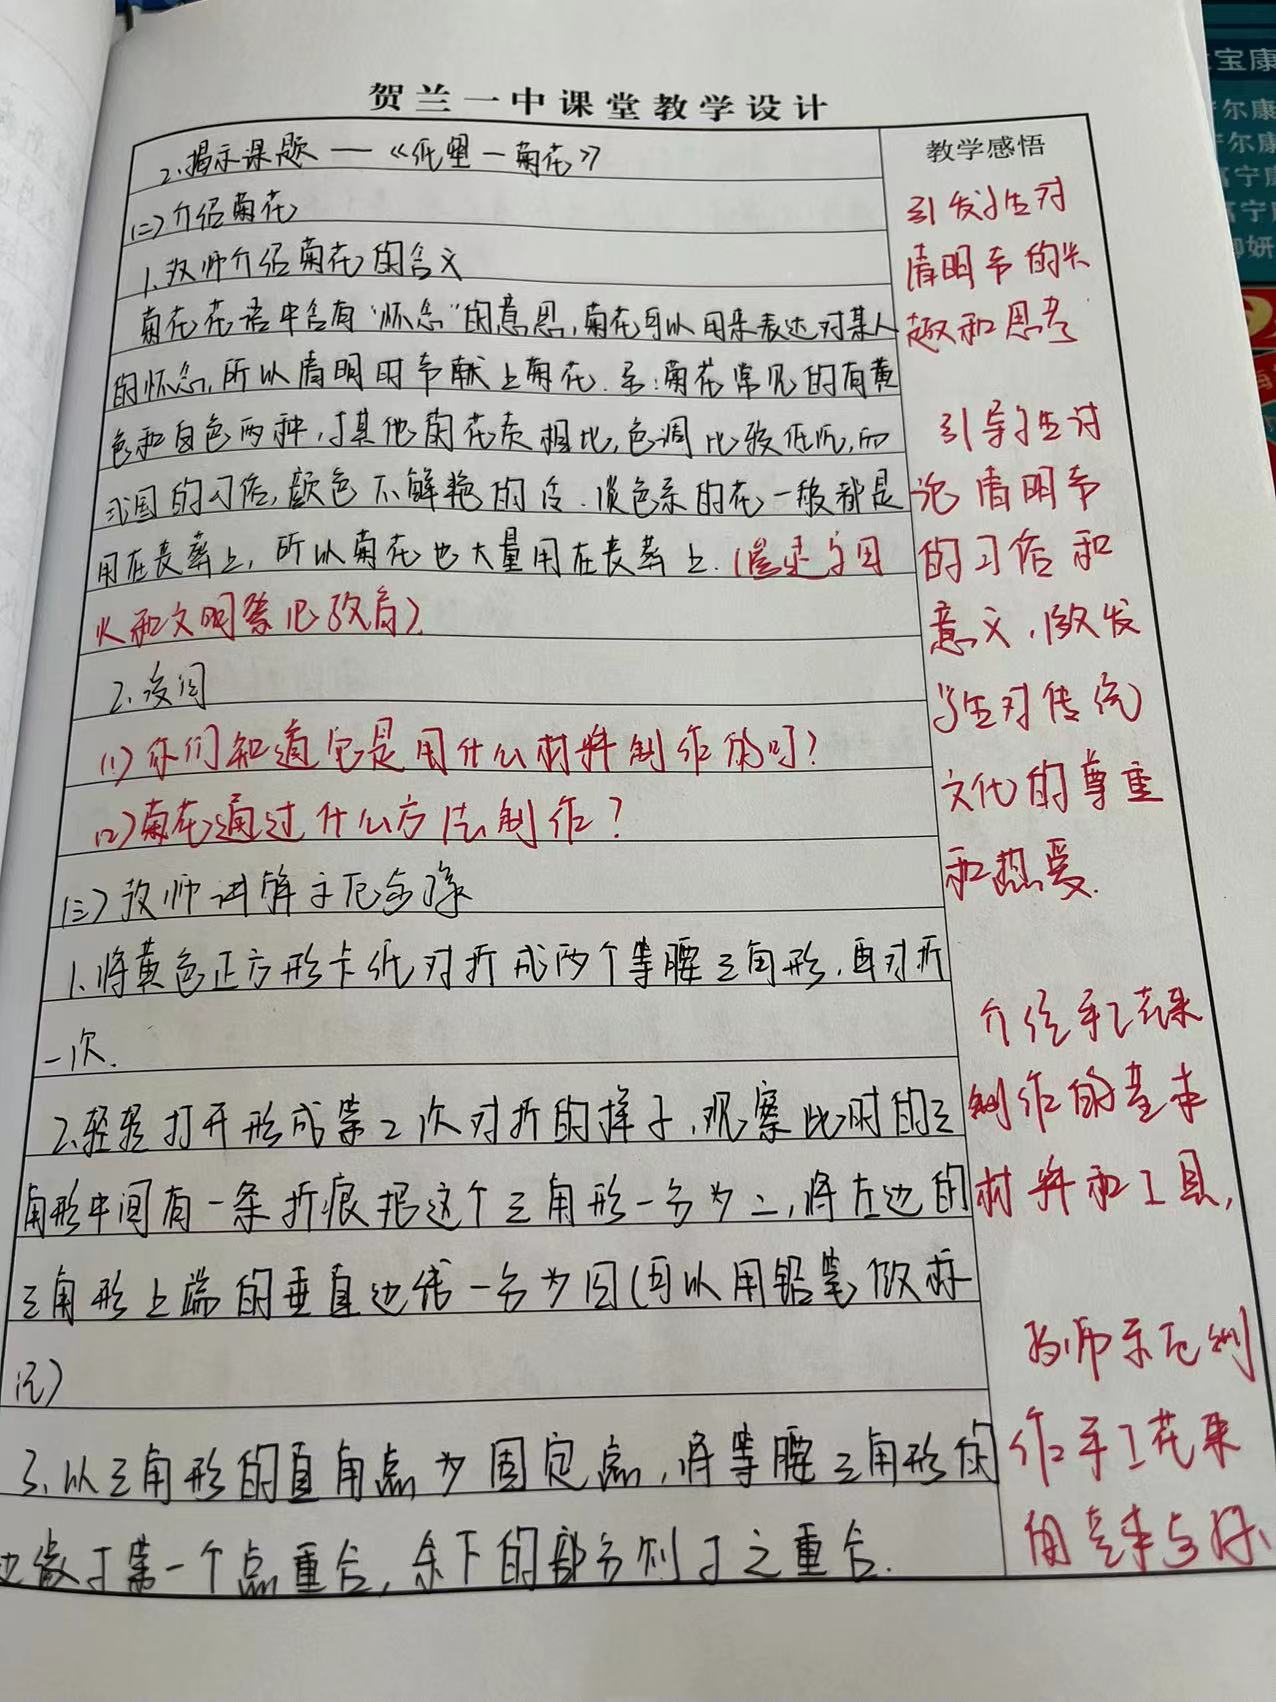 贺兰一中课堂教学设计
2.揭示课题——《纸塑—菊花》
(二)介绍菊花
1.教师介绍菊花的含义
菊花花语中含有“怀念”的意思,菊花可以用来表达对某人
的怀念,所以清明时节献上菊花.
菊花常见的有黄
色和白色两种,与其他菊花类相比,色调比较低沉,而
我国的习俗,颜色不鲜艳的冷.淡色系的花一般都是
用在丧葬上,所以菊花也大量用在丧葬上.
火和文明祭祀教育).
2.设问
(1)你们知道它是用什么材料制作的吗?
(2)菊花通过什么方法制作?
(三)教师讲解示范步骤
1.将黄色正方形卡纸对折成两个等腰三角形,再对折
一次.
2.轻轻打开形成第2次对折的样子,观察此时的三
角形中间有一条折痕把这个三角形一分为二,将左边的
三角形上端的垂直边线一分为四(可以用铅笔做标
记)
3.以三角形的直角点为固定点,将等腰三角形的
边缘与第一个点重合,余下的部分则与之重合.
教学感悟
引发学生对
清明节的兴
趣和思考
引导学生讨
论清明节
的习俗和
意义,激发
学生对传统
文化的尊重
和热爱.
介绍手工花束
制作的基本
材料和工具,
教师示范制
作手工花束
的
宝康
尔康
尔康
富宁康
富宁
御妍